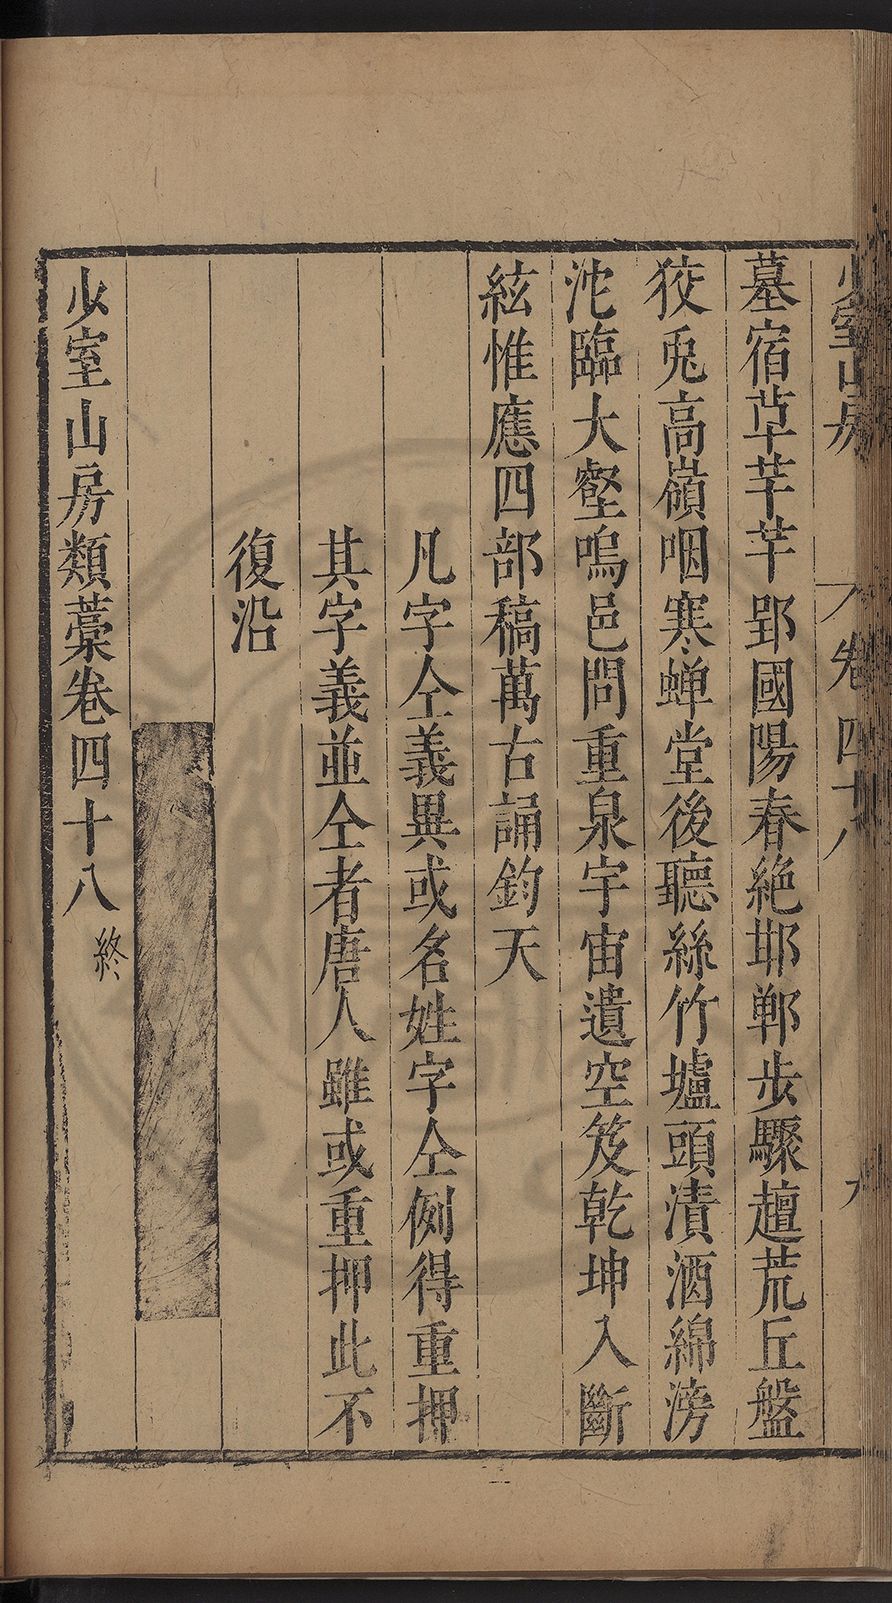 少室山房
卷四十八
九
墓宿草芊芊郢國陽春絶邯鄲步驟邅荒丘盤
狡兎高嶺咽寒蝉堂後聽絲竹壚頭漬酒綿滂
沱臨大壑嗚邑問重泉宇宙遺空笈乾坤入斷
絃惟應四部稿萬古誦鈞天
凡字仝義異或名姓字仝例得重押
其字義並仝者唐人雖或重押此不
復沿
少室山房類藁卷四十八終